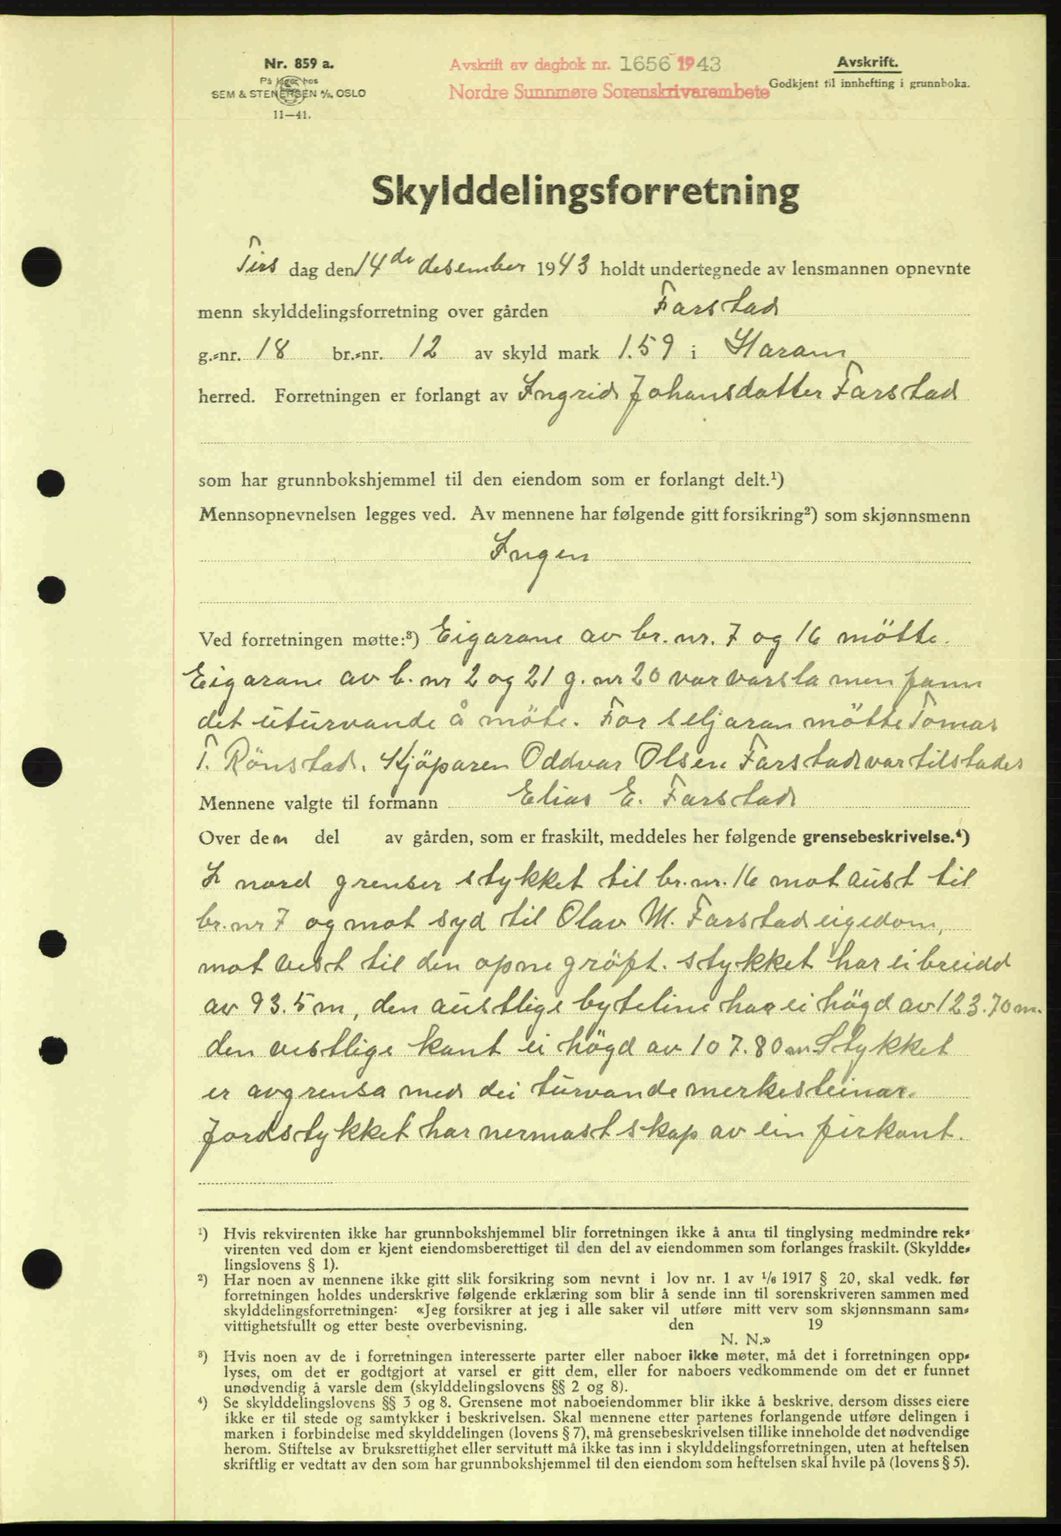 Nr. 859 a.
På lager hos
SEM & STENERSEN A/S. OSLO
11—41.
Avskrift av dagbok nr. 1656 1943
Nordre Sunnmøre Sorenskrivarembete
Avskrift.
Godkjent til innhefting i grunnboka.
Skylddelingsforretning
Tirs dag den 14de desember 1943 holdt undertegnede av lensmannen opnevnte
menn skylddelingsforretning over gården Farstad
g.-nr. 18 br.-nr. 12 av skyld mark 1.59 i Haram
herred. Forretningen er forlangt av Ingrid Johansdatter Farstad
som har grunnbokshjemmel til den eiendom som er forlangt delt.¹)
Mennsopnevnelsen legges ved. Av mennene har følgende gitt forsikring²) som skjønnsmenn
Ingen
Ved forretningen møtte:³) Eigarane av br. nr. 7 og 16 mötte.
Eigarane av b. nr 2 og 21 g. nr 20 var varsla men fann
det uturvande å möte. For seljaran mötte Tomas
T. Rönstad. Kjöparen Oddvar Olsen Farstad var tilstades
Mennene valgte til formann Elias E. Farstad
Over den del av gården, som er fraskilt, meddeles her følgende grensebeskrivelse.⁴)
I nord grenser stykket til br. nr. 16 mot aust til
br. nr 7 og mot syd til Olav M. Farstad eigedom,
mot vest til den opne gröft. Stykket har ei breidd
av 93.5 m, den austlige byteline har ei högd av 123.70 m.
den vestlige kant ei högd av 107.80 m Stykket
er avgrensa med dei turvande merkesteinar.
Jordstykket har nermast skap av ein firkant.
¹) Hvis rekvirenten ikke har grunnbokshjemmel blir forretningen ikke å anta til tinglysing medmindre rek-
virenten ved dom er kjent eiendomsberettiget til den del av eiendommen som forlanges fraskilt. (Skyldde-
lingslovens § 1).
²) Har noen av mennene ikke gitt slik forsikring som nevnt i lov nr. 1 av 1/6 1917 § 20, skal vedk. før
forretningen holdes underskrive følgende erklæring som blir å sende inn til sorenskriveren sammen med
skylddelingsforretningen: «Jeg forsikrer at jeg i alle saker vil utføre mitt verv som skjønnsmann sam-
vittighetsfullt og etter beste overbevisning. den 19
N. N.»
³) Hvis noen av de i forretningen interesserte parter eller naboer ikke møter, må det i forretningen opp-
lyses, om det er godtgjort at varsel er gitt dem, eller for naboers vedkommende om det er funnet
unødvendig å varsle dem (skylddelingslovens §§ 2 og 8).
⁴) Se skylddelingslovens §§ 3 og 8. Grensene mot naboeiendommer blir ikke å beskrive, dersom disses eiere
ikke er til stede og samtykker i beskrivelsen. Skal mennene etter partenes forlangende utføre delingen i
marken i forbindelse med skylddelingen (lovens § 7), må grensebeskrivelsen tillike inneholde det nødvendige
herom. Stiftelse av bruksrettighet eller servitutt må ikke tas inn i skylddelingsforretningen, uten at heftelsen
skriftlig er vedtatt av den som har grunnbokshjemmel til den eiendom som heftelsen skal hvile på (lovens § 5).